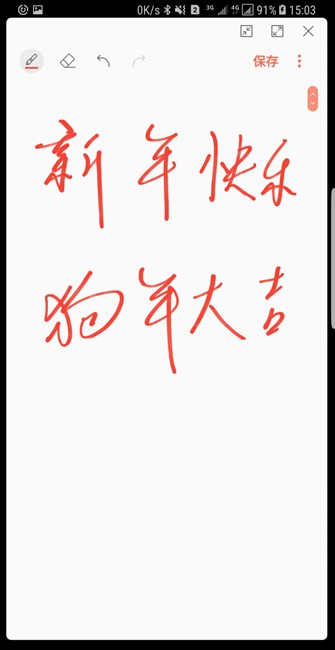 0K/s 2 3G 4G 91% 15:03
保存
新年快乐
狗年大吉